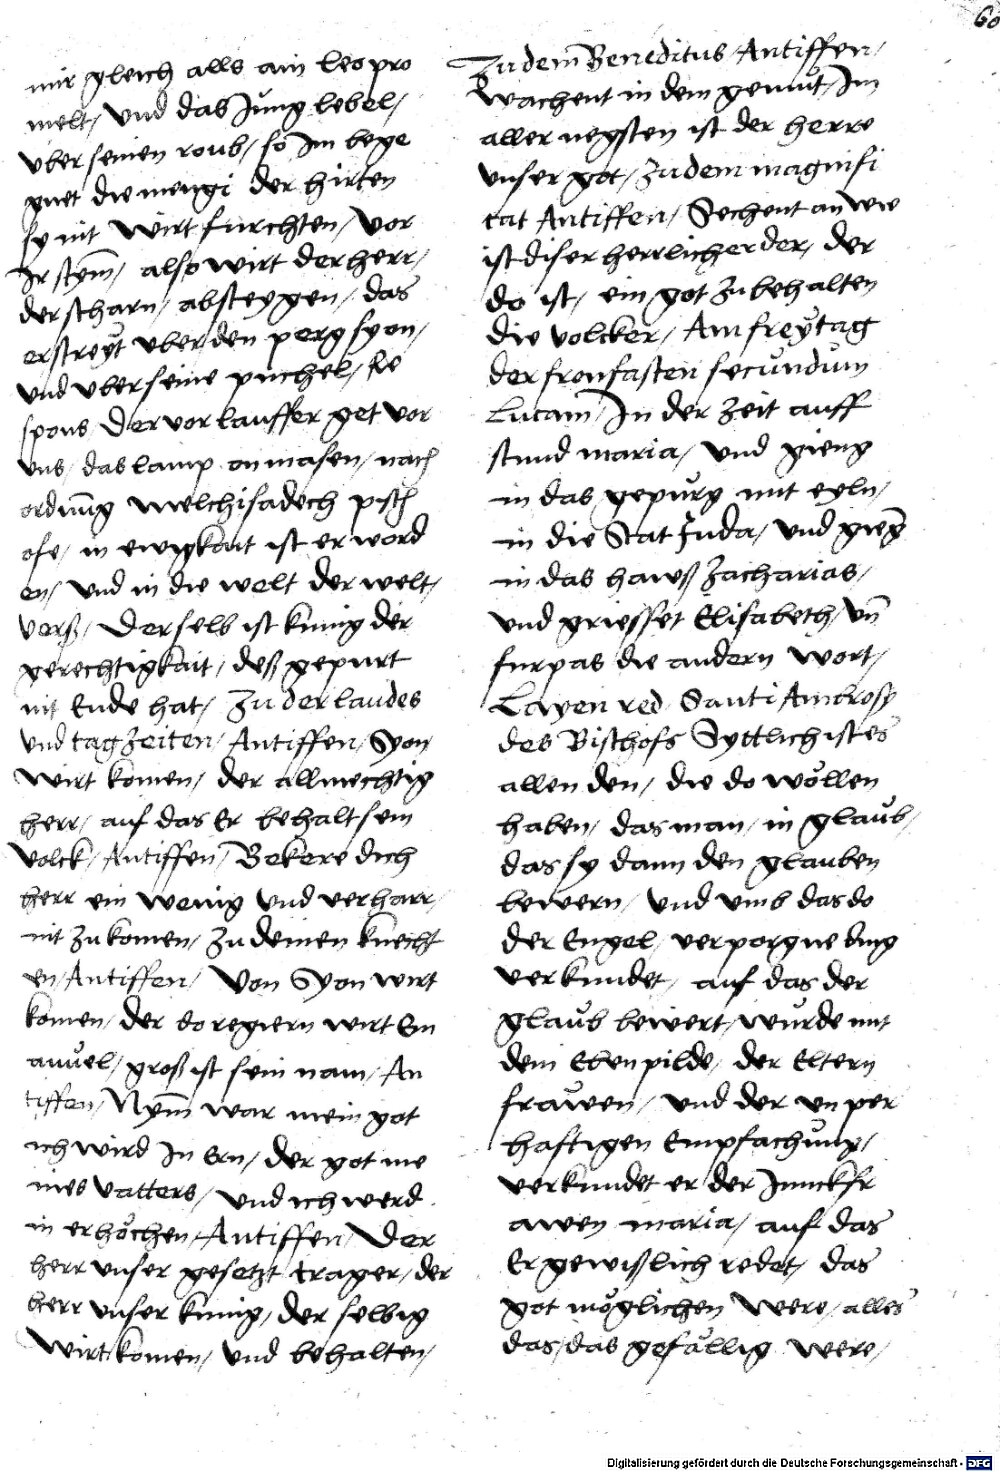 60
mir gleich alls ain leo pro
melt / Vnd das Jung lebel /
vber seinen roub / so Im bege
gnet die mengi der hirten
sy nit wirt furchten / vor
Ir stym̄ / also wirt der herr /
der scharn / absteygen / das
er streyt vber den perg syon /
vnd vber seine puchel / Re
spons Der vorlauffer get vor
vns / das lamp on masen / nach
ordnūg Melchisadech
ofe / in ewigkait ist er word
en / vnd in die welt der welt /
Verß / Der selb ist kunig der
gerechtigkait / deß gepurt
nit Ende hat / Zu der laudes
vnd tagzeiten / Antiffen / Syon
wirt komen / der allmechtig
herr / auf das Er behalt sein
volck / Antiffen / Bekere dich
herr ein wenig vnd verharr /
nit zu komen / zu deinen knecht
en / Antiffen / Von Syon wirt
komen / der do regiern wirt Em
anůel / groß ist sein nam / An
tiffen / Nym̄ war mein got
ich wird In Ern / der got me
ines vatters / vnd ich werd
in erhöchen / Antiffen / Der
herr vnser gesetzt trager / der
herr vnser kunig / der selbig
wirt komen / vnd behalten /
Zu dem Beneditus / Antiffen /
Wachent in dem gemůt / Im
aller negsten ist der herre
vnser got / Zu dem magnifi
cat Antiffen / Sechent an wie
ist diser herrlicher der / der
do ist / ein got zu behalten
die volcker / Am freÿtag
der fronfasten secůndům
Lucam / In der zeit auff
stund maria / vnd gieng
in das gepůrg mit eyln /
in die Stat Juda / vnd gieg̅
in das hawß Zacharias /
vnd griesset Elisabeth / vn̄
furpas die andern wort /
Layen red Santi Ambrosy
des Bischofs Syttlich ist es
allen den / die do wöllen
haben / das man / in glaůb /
das sy dann den glauben
bewern / vnd vmb das do
der Engel / verporgne ding
verkundet / auf das der
glaůb bewert / wůrde mit
dem Ebenpilde / der Eltern
frawen / vnd der vnper
haftigen Empfachůng /
verkundet er der Junckfr
awen maria / auf das
Er gewißlich redet / das
got möglichen were / alles
das / das gefällig were /
Digitalisierung gefördert durch die Deutsche Forschungsgemeinschaft - DFG